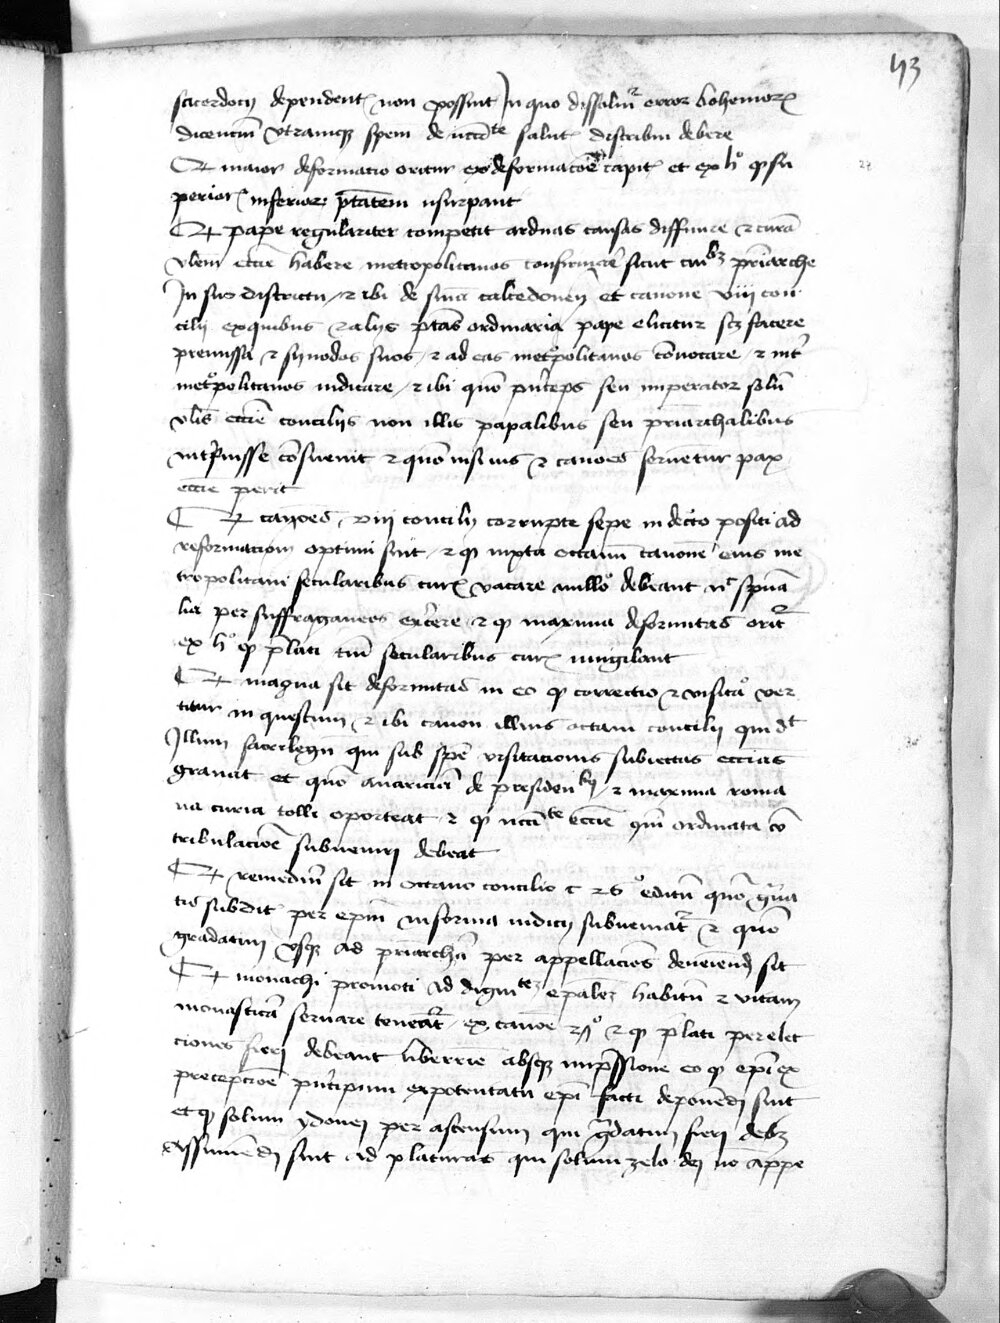 43
sacerdocij dependent non possint In quo dissolui error bohemorum
dicencium vtramque speciem de necessitate salutis distribui debere
Quod maior deformacio oritur ex deformacione capitis et ex hoc quod su
perior inferioris potestatem usurpant
28
Quod pape regulariter competit arduas causas diffinire et curam
vlem eccie habere metropolitanos confirmare sicut cuilibet priarche
In suo districtu et ibi de sinodo calcedonen et canone viii con
cilij ex quibus et aliis ptas ordinaria pape elicitur scz facere
premissa et synodos suos et ad eas metropolitanos convocare et inter
metropolitanos iudicare et ibi quomodo princeps seu imperator solum
vlis eccie conciliis non illis papalibus seu priarchalibus
interfuisse consuevit et quomodo nisi ius et canones servetur pax
eccie perit
Quod canones viii concilij corrupte sepe in decreto positi ad
reformacionem optimi sint et quod iuxta octavum canonem eius me
tropolitani secularibus curis vacare nullo debeant nec spiritua
lia per suffraganeos exercere et quod maxima deformitas oritur
ex hoc quod prelati tantum secularibus curis invigilant
Quod magna sit deformitas in eo quod correctio et visitacio ver
titur in questum et ibi canon illius octavi concilij qui dicit
Illum sacrilegum qui sub specie visitacionis subiectas ecclesias
gravat et quomodo avariciam de presidentibus et maxime roma
na curia tolli oporteat et quod necessitate eccie quam ordinata con
tribulacione subveniri debeat
Quod remedium sit in octavo concilio c 26 editum quomodo grava
tis subditis per episcopum in forma iudicij subveniatur et quomodo
gradatim vsque ad priarcham per appellaciones deveniendum sit
Quod monachi promoti ad dignitatem episcopalem habitum et vitam
monasticam servare teneantur ex canone 27 et quod prelati per elec
ciones fieri debeant libere absque impressione eo quod episcopi ex
precepcione principum ex potentatu episcopi facti deponendi sint
et quod solum ydonei per ascensum qui gradatim fieri debet
Assumendi sint ad prelaturas qui solum zelo dei non appe